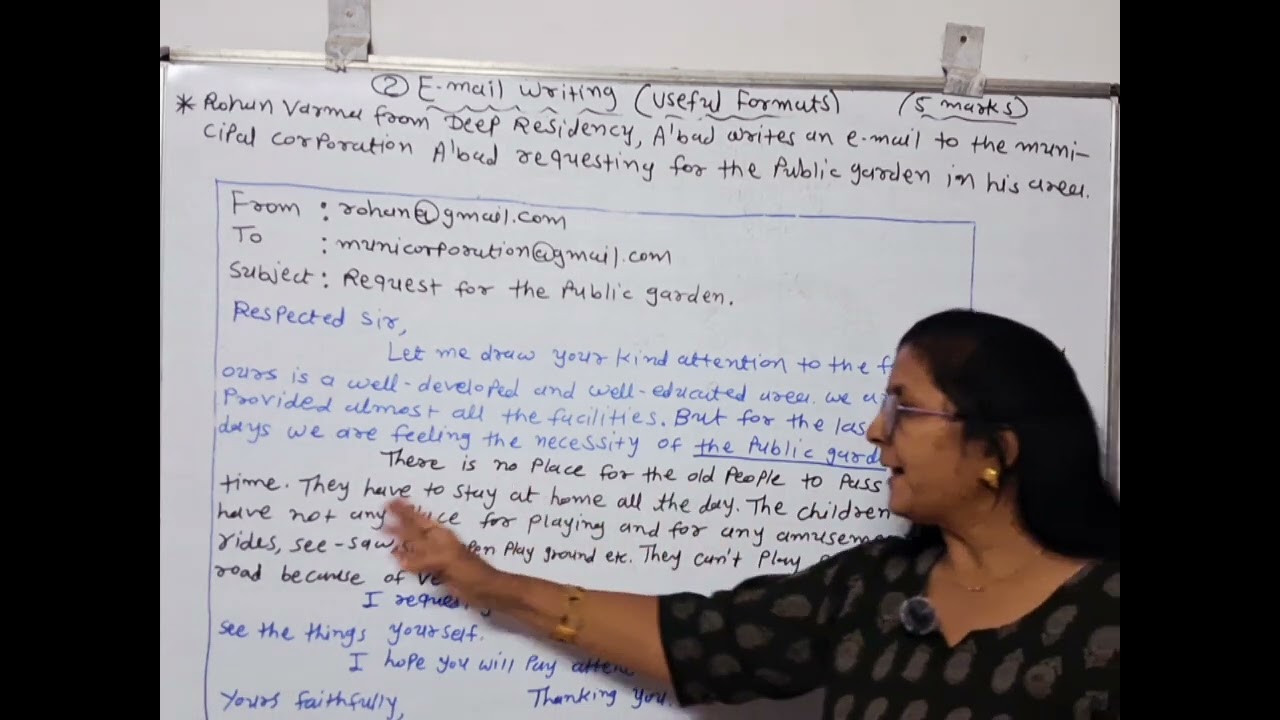 ② E-mail Writing (Useful Formats) (5 marks)
* Rohan Varma from Deep Residency, A'bad writes an e-mail to the muni-
cipal corporation A'bad requesting for the Public garden in his area.
From : rohan@gmail.com
To : municorporation@gmail.com
Subject : Request for the Public garden.
Respected Sir,
Let me draw your kind attention to the
ours is a well-developed and well-educated area. we
Provided almost all the facilities. But for the
days we are feeling the necessity of the Public
There is no Place for the old People to Pass
time. They have to stay at home all the day. The children
have not any for Playing and for any
rides, see-saw, Play ground etc. They can't Play
road because of
I
see the things yourself.
I hope you will Pay
Yours faithfully, Thanking you.